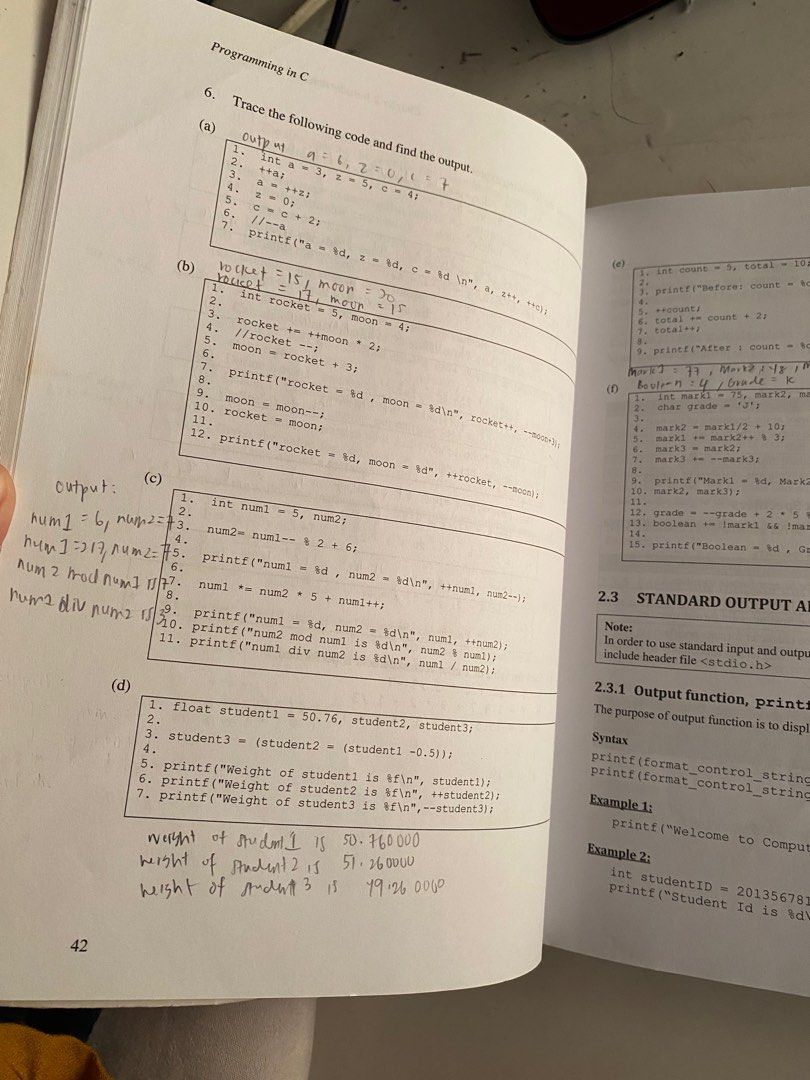 Programming in C
6. Trace the following code and find the output.
(a)
output a = 6, z = 0, c = 7
1. int a = 3, z = 5, c = 4;
2. ++a;
3. a = ++z;
4. z = 0;
5. c = c + 2;
6. //--a
7. printf("a = %d, z = %d, c = %d \n", a, z++, ++c);
(b)
rocket = 15, moon =
rocket = 17, moon = 15
1. int rocket = 5, moon = 4;
2.
3. rocket += ++moon * 2;
4. //rocket --;
5. moon = rocket + 3;
6.
7. printf("rocket = %d , moon = %d\n", rocket++, --moon+3);
8.
9. moon = moon--;
10. rocket = moon;
11.
12. printf("rocket = %d, moon = %d", ++rocket, --moon);
(c)
output:
num1 = 6, num2 = 7
num1 = 217, num2 = 7
num2 mod num1 is 7
num1 div num2 is
1. int num1 = 5, num2;
2.
3. num2= num1-- % 2 + 6;
4.
5. printf("num1 = %d , num2 = %d\n", ++num1, num2--);
6.
7. num1 *= num2 * 5 + num1++;
8.
9. printf("num1 = %d, num2 = %d\n", num1, ++num2);
10. printf("num2 mod num1 is %d\n", num2 % num1);
11. printf("num1 div num2 is %d\n", num1 / num2);
(d)
1. float student1 = 50.76, student2, student3;
2.
3. student3 = (student2 = (student1 -0.5));
4.
5. printf("Weight of student1 is %f\n", student1);
6. printf("Weight of student2 is %f\n", ++student2);
7. printf("Weight of student3 is %f\n",--student3);
weight of student1 is 50.760000
weight of student2 is 51.260000
weight of student 3 is 49.260000
42
(e)
1. int count = 5, total = 10;
2.
3. printf("Before: count =
4.
5. ++count;
6. total += count + 2;
7. total++;
8.
9. printf("After : count =
Mark1 = 77, Mark2 = 48,
Boolean = 4, Grade = K
(f)
1. int mark1 = 75, mark2,
2. char grade = 'J';
3.
4. mark2 = mark1/2 + 10;
5. mark1 += mark2++ % 3;
6. mark3 = mark2;
7. mark3 += --mark3;
8.
9. printf("Mark1 = %d,
10. mark2, mark3);
11.
12. grade = --grade + 2 * 5 %
13. boolean += !mark1 &&
14.
15. printf("Boolean = %d ,
2.3 STANDARD OUTPUT
Note:
In order to use standard input and
include header file <stdio.h>
2.3.1 Output function,
The purpose of output function is to
Syntax
printf(format_control_string
printf(format_control_string
Example 1:
printf("Welcome to
Example 2:
int studentID =
printf("Student Id is